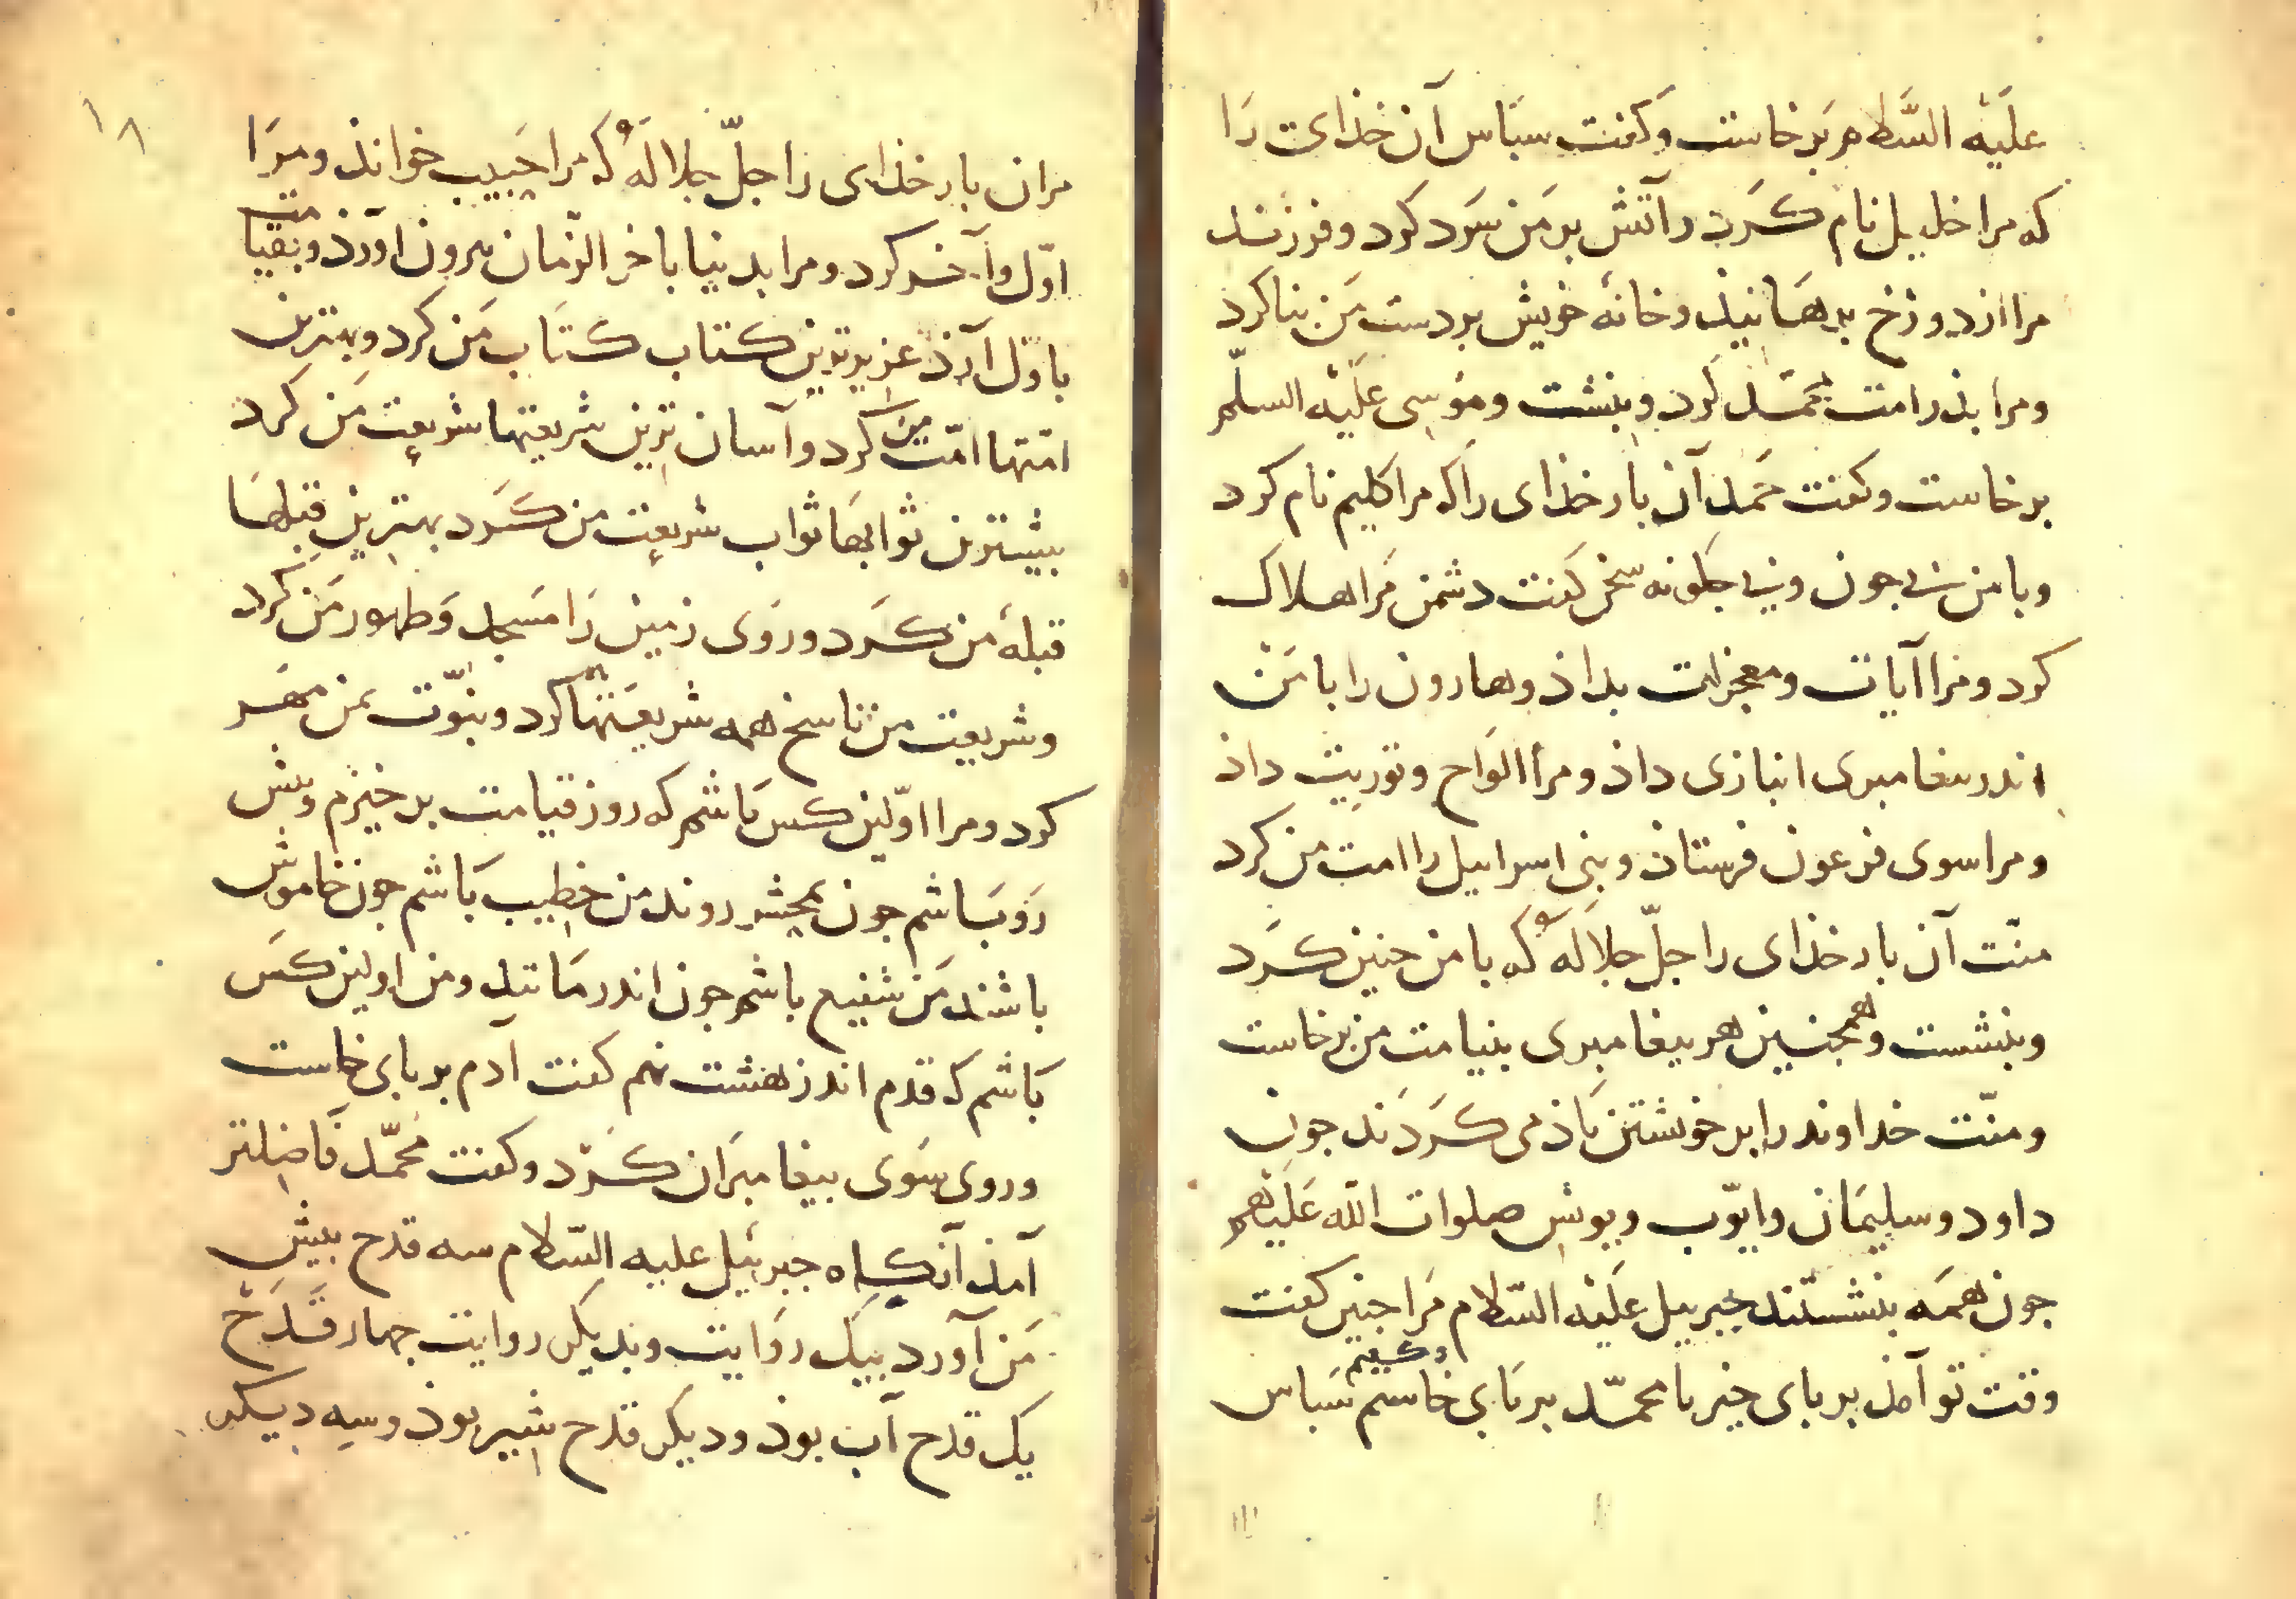 علَیْه السَّلام برخاست وکفت سبَاس آن خذای رَا
که مرا خلیل نام کَرد و آتش بر مَن سَرد کرد وفرزند
مرا از دوزخ برهَانیذ وخانهٔ خویش بر دست مَن بنا کرد
ومرا بذر امت محمَّد کَرد وبنشت وموسی علَیْه السلم
برخاست وکفت حَمد آن بار خذای راکه مرا کلیم نام کرد
وبا من بی جون وبی جکونه سخن کفت دشمن مَرا هلاک
کرد ومرا آیات ومعجزات بداذ وهارون را با مَن
اندر بیغامبری انبازی داذ ومرا الوَاح وتوریت داذ
ومرا سوی فرعون فرستاذ وبنی اسراییل را امت من کرد
منّت آن بار خذای را جلّ جلاله که با من جنین کَرد
وبنشست وهمجنین هر بیغامبری بنیامت من برخاست
ومنّت خداوند را بر خویشتن یَاذ می کَردَند جون
داود وسلیمَان وایّوب ویونس صلوات اللّه عَلَیْهم
جون همَه بنشستند جبرییل علَیْه السّلام مَرا جنین کفت
وقت تو آمذ بر بای خیز یا محمّد بر بَای خاستم وکفتم سَباس
۱۸
مران بار خذای را جلّ جلالهُ که مرا حَبیب خواند ومرَا
اوّل وآخر کرد ومرا بدنیا باخر الزمان بیرون آورذ وبقیامت
باوّل آرذ عزیزترین کتاب کتَاب مَن کرد وبهترین
امّتها امّت من کرد وآسان ترین شریعتها شریعت مَن کرد
بیشترین ثوابهَا ثواب شریعت من کَرد بهترین قبلهَا
قبلهٔ من کَرد وروَی زمین رَا مَسجد وَطهور مَن کرد
وشریعت من ناسخ همه شریعتها کرد ونبوّت بمن مهَر
کرد ومرا اوّلین کس باشم که روز قیامت برخیزم وبیش
رَو بَاشم جون بمحشر روند من خطیب بَاشم جون خاموش
باشند مَن شفیع باشم جون اندر مَانند ومن اولین کسَ
بَاشم که قدم اندر بهشت نهم کفت آدم بر بای خاست
وروی سَوی بیغامبرَان کَرد وکفت محَمّد فَاضلتر
آمذ آنکاه جبرئیل علیه السّلام سه قدح بیش
مَن آورد بیک روَایت وبدیکر روایت جهار قَدَح
یک قدح آب بوذ ودیکر قدح شیر بوذ وسه دیکر